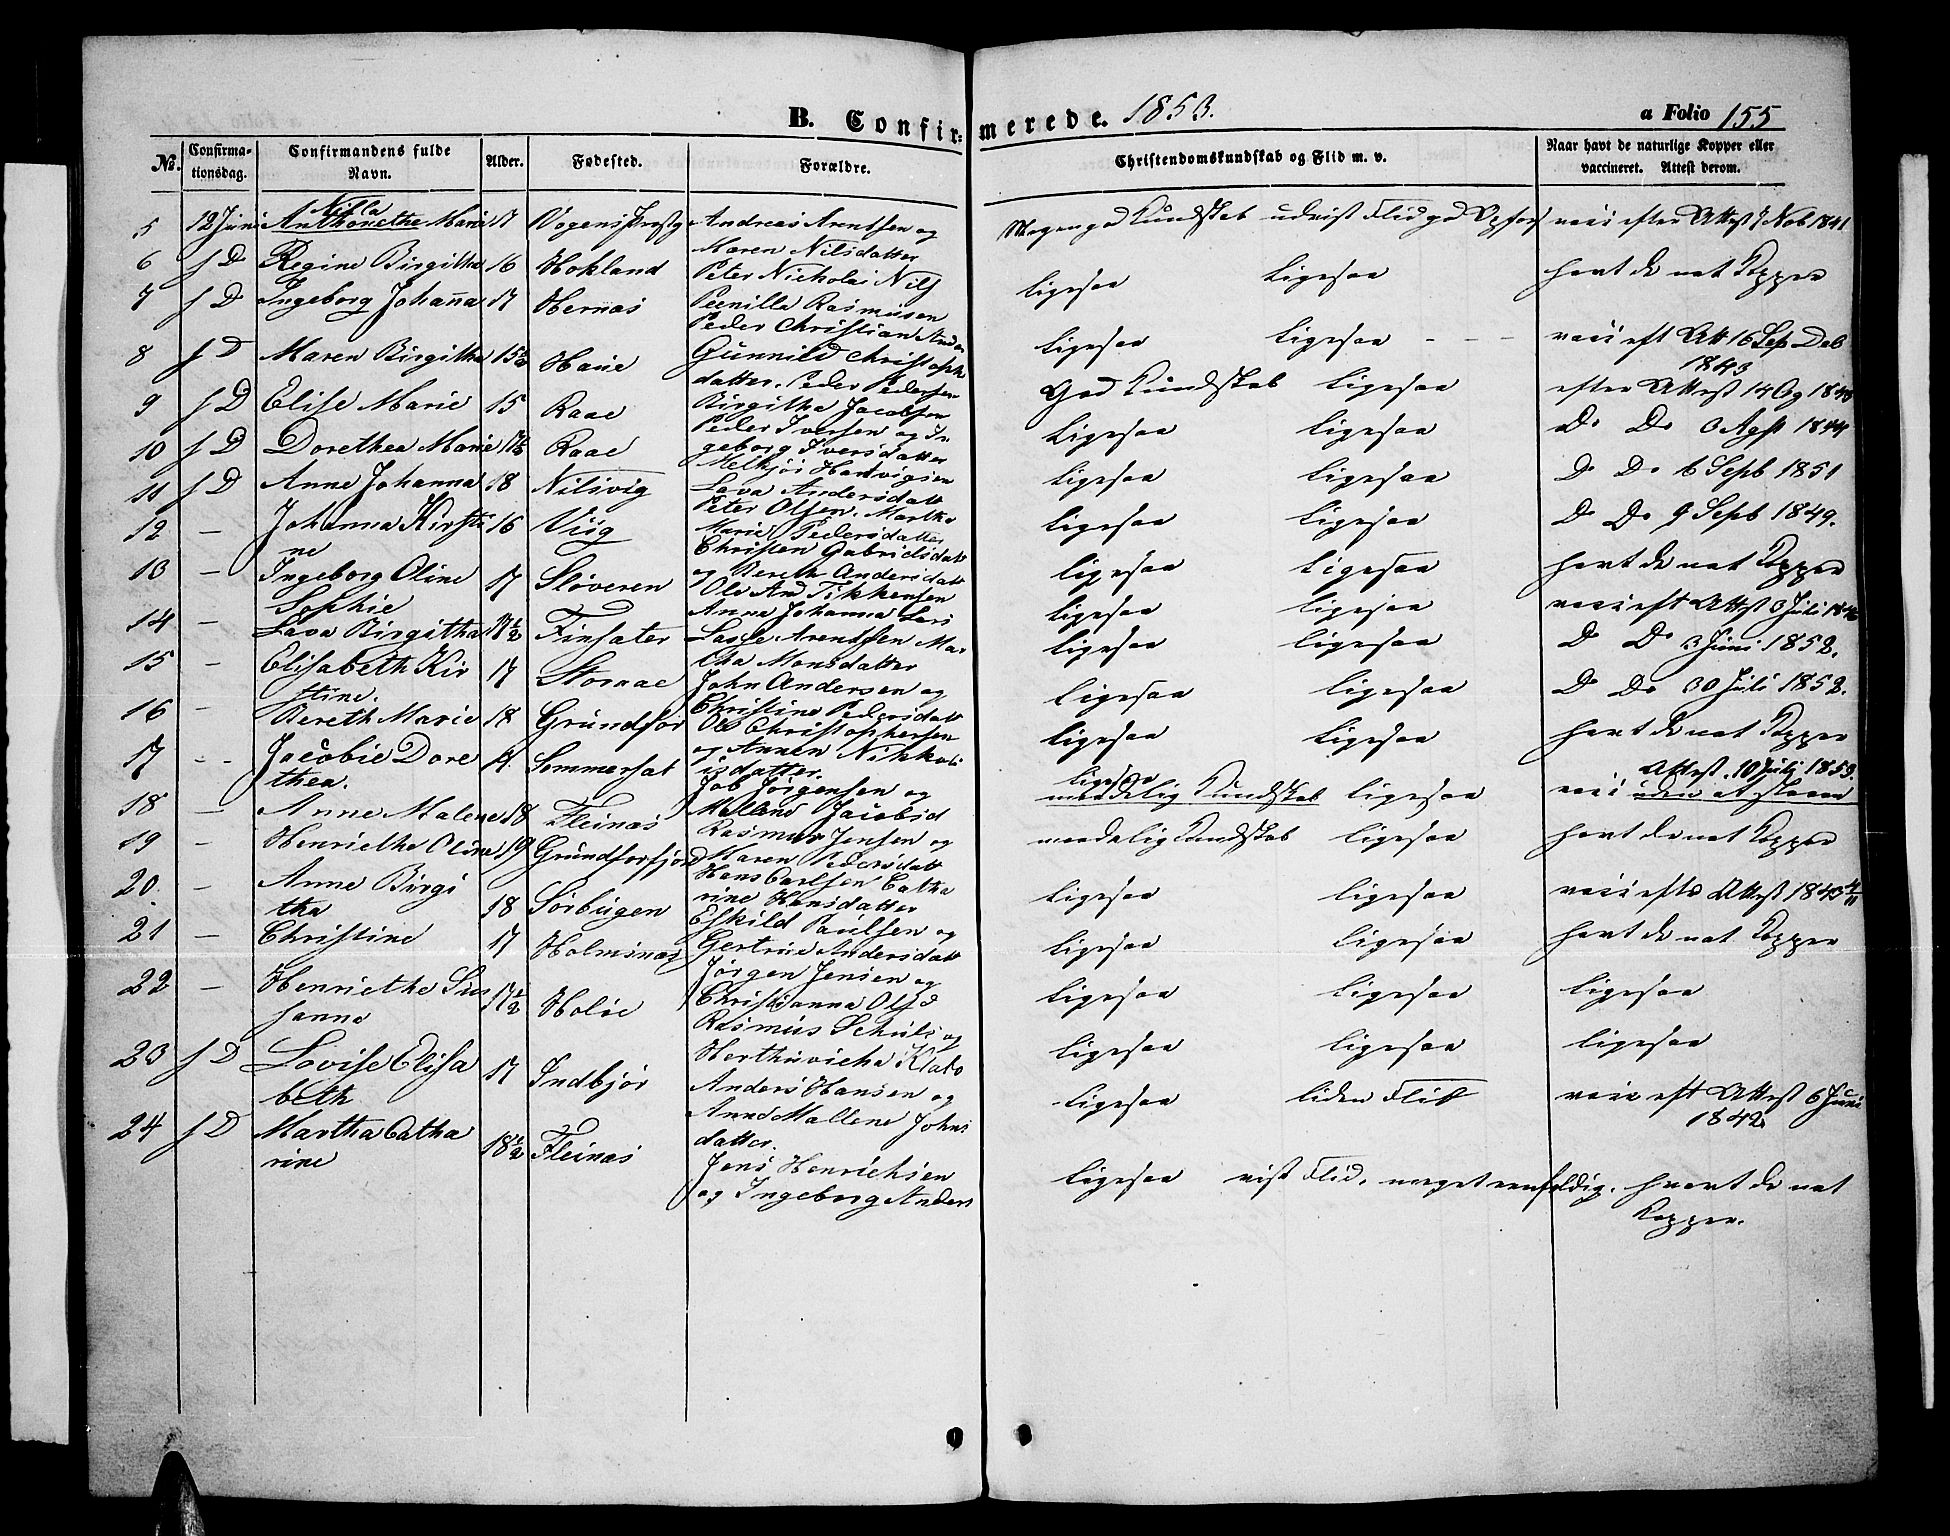 B. Confirmerede. 1853.
a Folio 155
No. Confirmationsdag. Confirmandens fulde Navn. Alder. Fødested. Forældre. Christendomskundskab og Flid m. v. Naar havt de naturlige Kopper eller vaccineret. Attest derom.
5 12 Juni Nilla Anthonethe Marie 17 Andreas Arentsen og Maren Nilsdatter
6 s D Regine Birgitha 16 Hokland Peter Nicholai Nils Pernilla Rasmusen ligesaa ligesaa havt de nat Kopper
7 s D Ingeborg Johanna 17 Hernæs Peder Christian Ander Gunnild Christoph datter. ligesaa ligesaa vacc eft Att 16 Sep 1843
8 s D Maren Birgitha 15½ Haue Peder Pedersen Birgitha Jacobsen God Kundskab ligesaa efter Attest
9 s D Elise Marie 15 Raae Peder Iversen og Ingeborg Iversdatter ligesaa ligesaa Do Do 1844
10 s D Dorethea Marie Raae Melkjør Hartvigsen Lava Andersdatt ligesaa ligesaa D Do 6 Septb 1851
11 s D Anne Johanna 18 Nilsvig Peter Olsen. Martha Marie Pedersdatter ligesaa ligesaa D Do 9 Septb 1849.
12 — Johanna Kirstine 16 Visg Christen Gabrielsdatt og Bereth Andersdatt ligesaa ligesaa havt de nat Kopper
13 — Ingeborg Oline Sophie 17 Sløveren Ole And Tikkensen Anna Johanna Lars ligesaa ligesaa vacc eft Attest Juli
14 — Lava Birgitha 17½ Finsæter Lasse Arentsen Martha Monsdatter ligesaa ligesaa D Do 3 Juni 1852.
15 — Elisabeth Kirstine. 17 Stornae John Andersen og Christine Pedersdatt ligesaa ligesaa D Do 30 Juli 1852.
16 — Bereth Marie 18 Grundfor Ole Christophersen og Annen Nikkolaisdatter. ligesaa ligesaa havt de nat Kopper
17 — Jacobie Dorethea. Sommersæt Job Jørgensen og Mallene Jacobsd ligesaa ligesaa vacc Attest 10 Juli 1853.
18 — Anne Malene 18 Fleinæs Rasmus Jensen og Maren Pedersdatt maadelig Kundskab ligesaa havt de nat Kopper
19 — Henriethe Oline 19 Grundforfjord Hans Carlsen Catharine Hansdatter ligesaa ligesaa vacc efter Attest 1843 4/11
20. — Anne Birgitha 18 Sørbugen Eskild Paulsen og Gertrine Andersdatt ligesaa ligesaa havt de nat Kopper
21 — Christine 17 Holmsnæs Jørgen Jensen og Christianna Olsd ligesaa ligesaa ligesaa
22 — Henriethe Susanne 17½ Holøe Rasmus Schuls og Harthvicha Klabo ligesaa ligesaa ligesaa
23 s D Lovise Elisabeth 17 Indbjør Anders Hansen og Anne Mallene Johnsdatter. ligesaa liden Flid vacc eft Attest 6 Juni 1842
24 s D Martha Catharine 18½ Fleinæs Jens Henrichsen og Ingeborg Anders ligesaa vist Flid, meget eenfoldig. havt de nat Kopper.